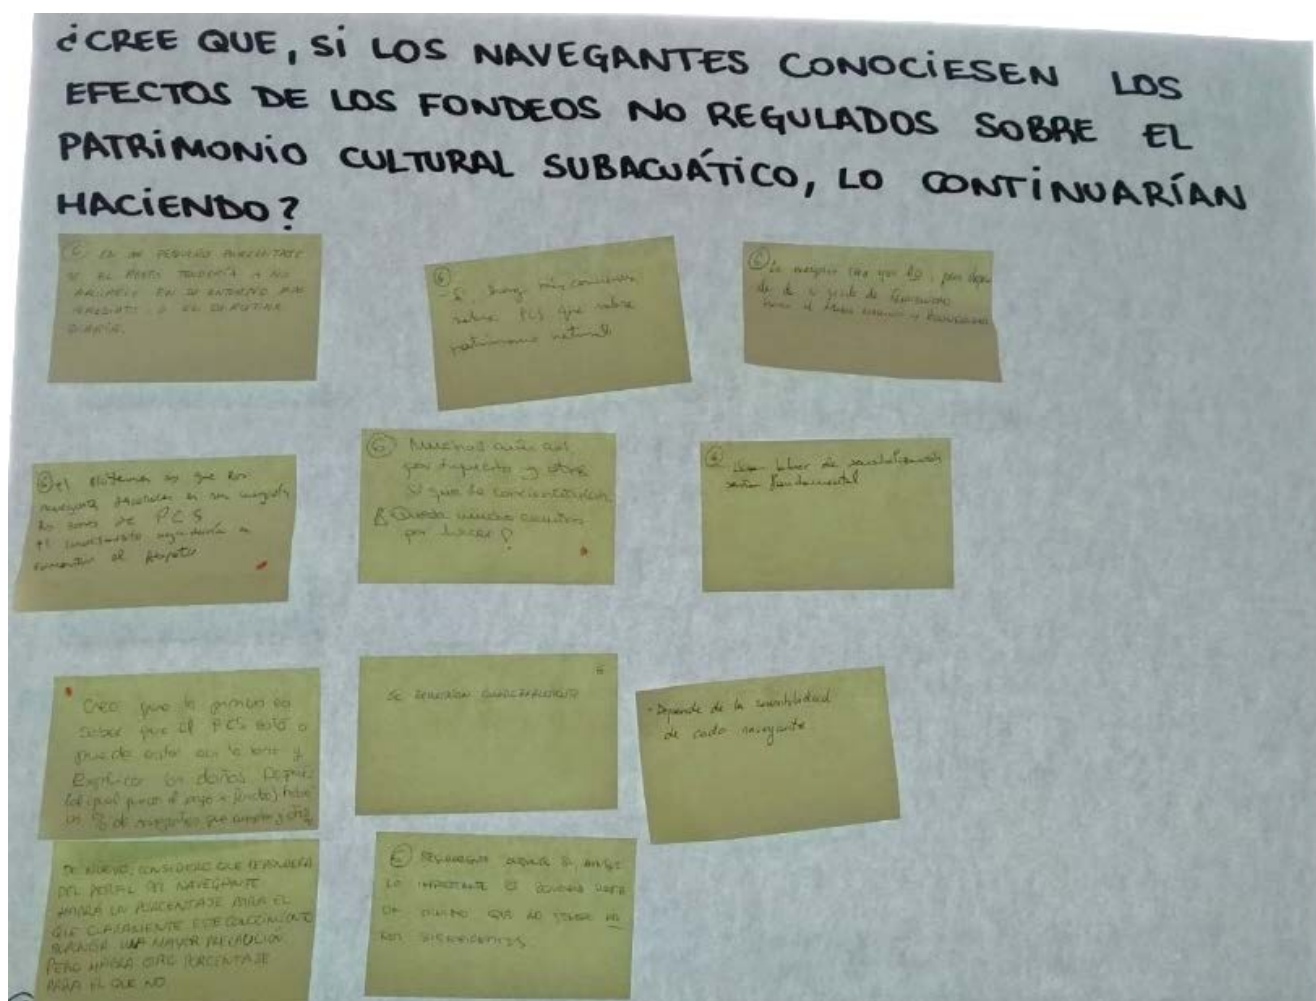 ¿CREE QUE, Si LOS NAVEGANTES CONOCiESEN LOS
EFECTOS DE LOS FONDEOS NO REGULADOS SOBRE EL
PATRiMONiO CULTURAL SUBACUÁTiCO, LO CONTiNUARÍAN
HACiENDO?
EN UN PEQUEÑO PORCENTAJE
SI EL RESTO TENDERÍA A NO
EN SU ENTORNO MÁS
INMEDIATO O EN SU RUTINA
DIARIA.
⑥
- Sí, hay más conciencia
sobre PCS que sobre
patrimonio natural
⑥ La mayoría creo que no, pero depen
de de
⑥ el problema es que los
navegantes desconocen en su mayoría
las zonas de PCS
el conocimiento ayudaría a
fomentar el respeto
⑥ Muchos aún así
por y otros
sí que se concienciarían
Queda mucho camino
por hacer
⑥ Una labor de sensibilización
sería fundamental
Creo que lo primero es
saber que el PCS está o
puede estar en la zona y
explicar los daños. Después
(al igual que
un % de navegantes que cumplan y otro
6
SE REDUCIRÍAN
- Depende de la sensibilidad
de cada navegante
DE NUEVO, CONSIDERO QUE DEPENDERÁ
DEL PERFIL DEL NAVEGANTE
HABRÁ UN PORCENTAJE PARA EL
QUE CLARAMENTE ESTE CONOCIMIENTO
SUPONGA UNA MAYOR PRECAUCIÓN,
PERO HABRÁ OTRO PORCENTAJE
PARA EL QUE NO.
⑥ SEGURAMENTE ALGUNOS SI, AUNQUE
LO IMPORTANTE ES
QUE NO SERÁN